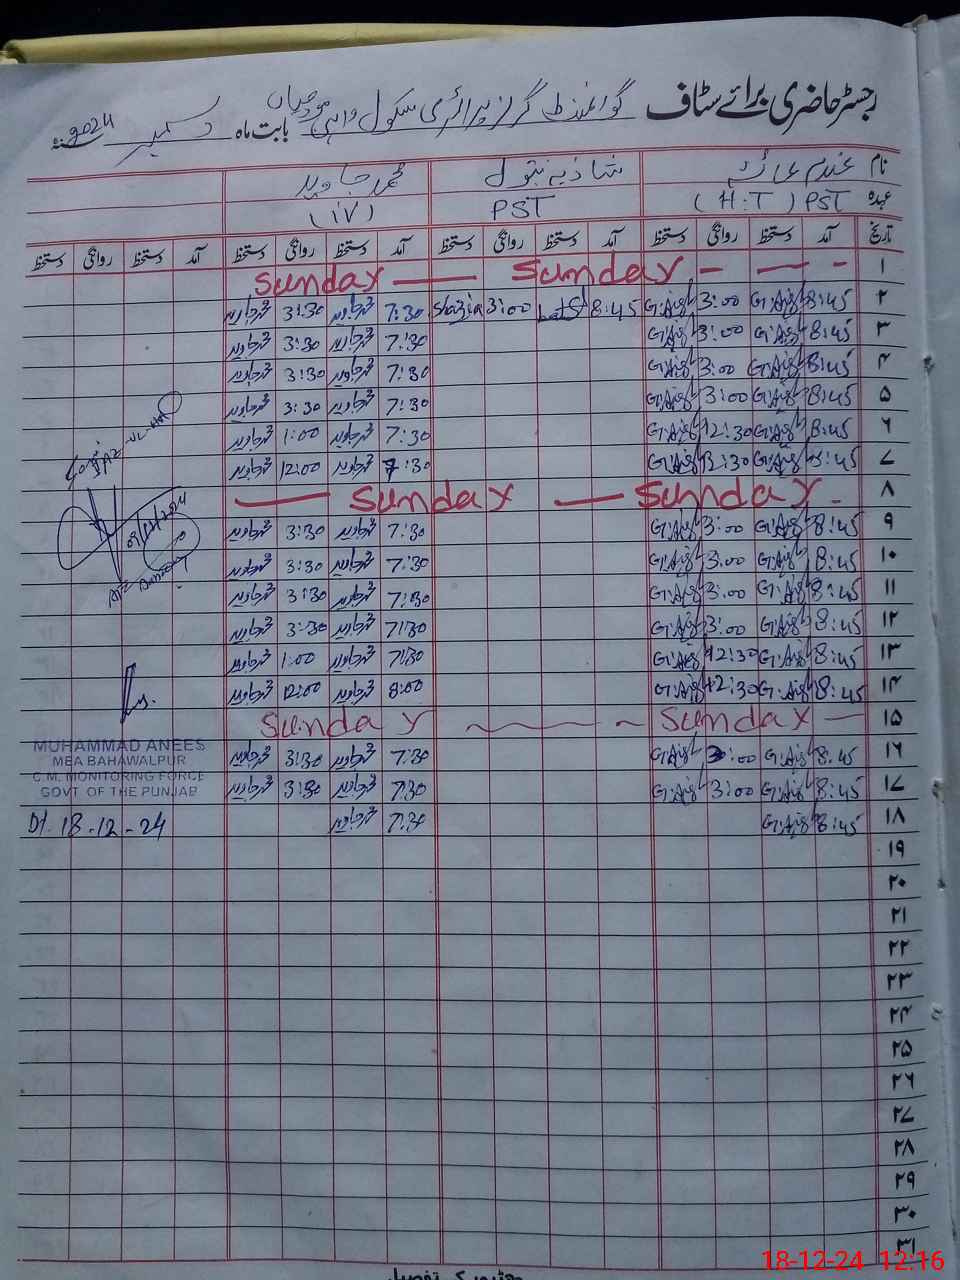 رجسٹر حاضری برائے سٹاف گورنمنٹ گرلز پرائمری سکول واہی بابت ماہ دسمبر 2024
نام شازیہ بتول محمد جاوید
عہدہ PST (H:T) PST (IV)
تاریخ آمد دستخط روانگی دستخط آمد دستخط روانگی دستخط آمد دستخط روانگی دستخط آمد دستخط روانگی دستخط
۱ Sunday Sunday
۲ 8:45 3:00 8:45 3:00 Shazia 7:30 محمد جاوید 3:30 محمد جاوید
۳ 8:45 3:00 7:30 محمد جاوید 3:30 محمد جاوید
۴ 8:45 3:00 7:30 محمد جاوید 3:30 محمد جاوید
۵ 8:45 3:00 7:30 محمد جاوید 3:30 محمد جاوید
۶ 8:45 12:30 7:30 محمد جاوید 1:00 محمد جاوید
۷ 8:45 7:30 محمد جاوید 12:00 محمد جاوید
۸ Sunday Sunday
۹ 8:45 3:00 7:30 محمد جاوید 3:30 محمد جاوید
۱۰ 8:45 3:00 7:30 محمد جاوید 3:30 محمد جاوید
۱۱ 8:45 3:00 7:30 محمد جاوید 3:30 محمد جاوید
۱۲ 8:45 3:00 7:30 محمد جاوید 3:30 محمد جاوید
۱۳ 8:45 12:30 7:30 محمد جاوید 1:00 محمد جاوید
۱۴ 8:45 12:30 8:00 محمد جاوید 12:00 محمد جاوید
۱۵ Sunday Sunday
۱۶ 8:45 3:00 7:30 محمد جاوید 3:30 محمد جاوید
۱۷ 8:45 3:00 7:30 محمد جاوید 3:30 محمد جاوید
۱۸ 8:45 7:30 محمد جاوید
۱۹
۲۰
۲۱
۲۲
۲۳
۲۴
۲۵
۲۶
۲۷
۲۸
۲۹
۳۰
۳۱
09/12/2024
MUHAMMAD ANEES
MEA BAHAWALPUR
C.M. MONITORING FORCE
GOVT OF THE PUNJAB
Dt. 18-12-24
18-12-24 12:16